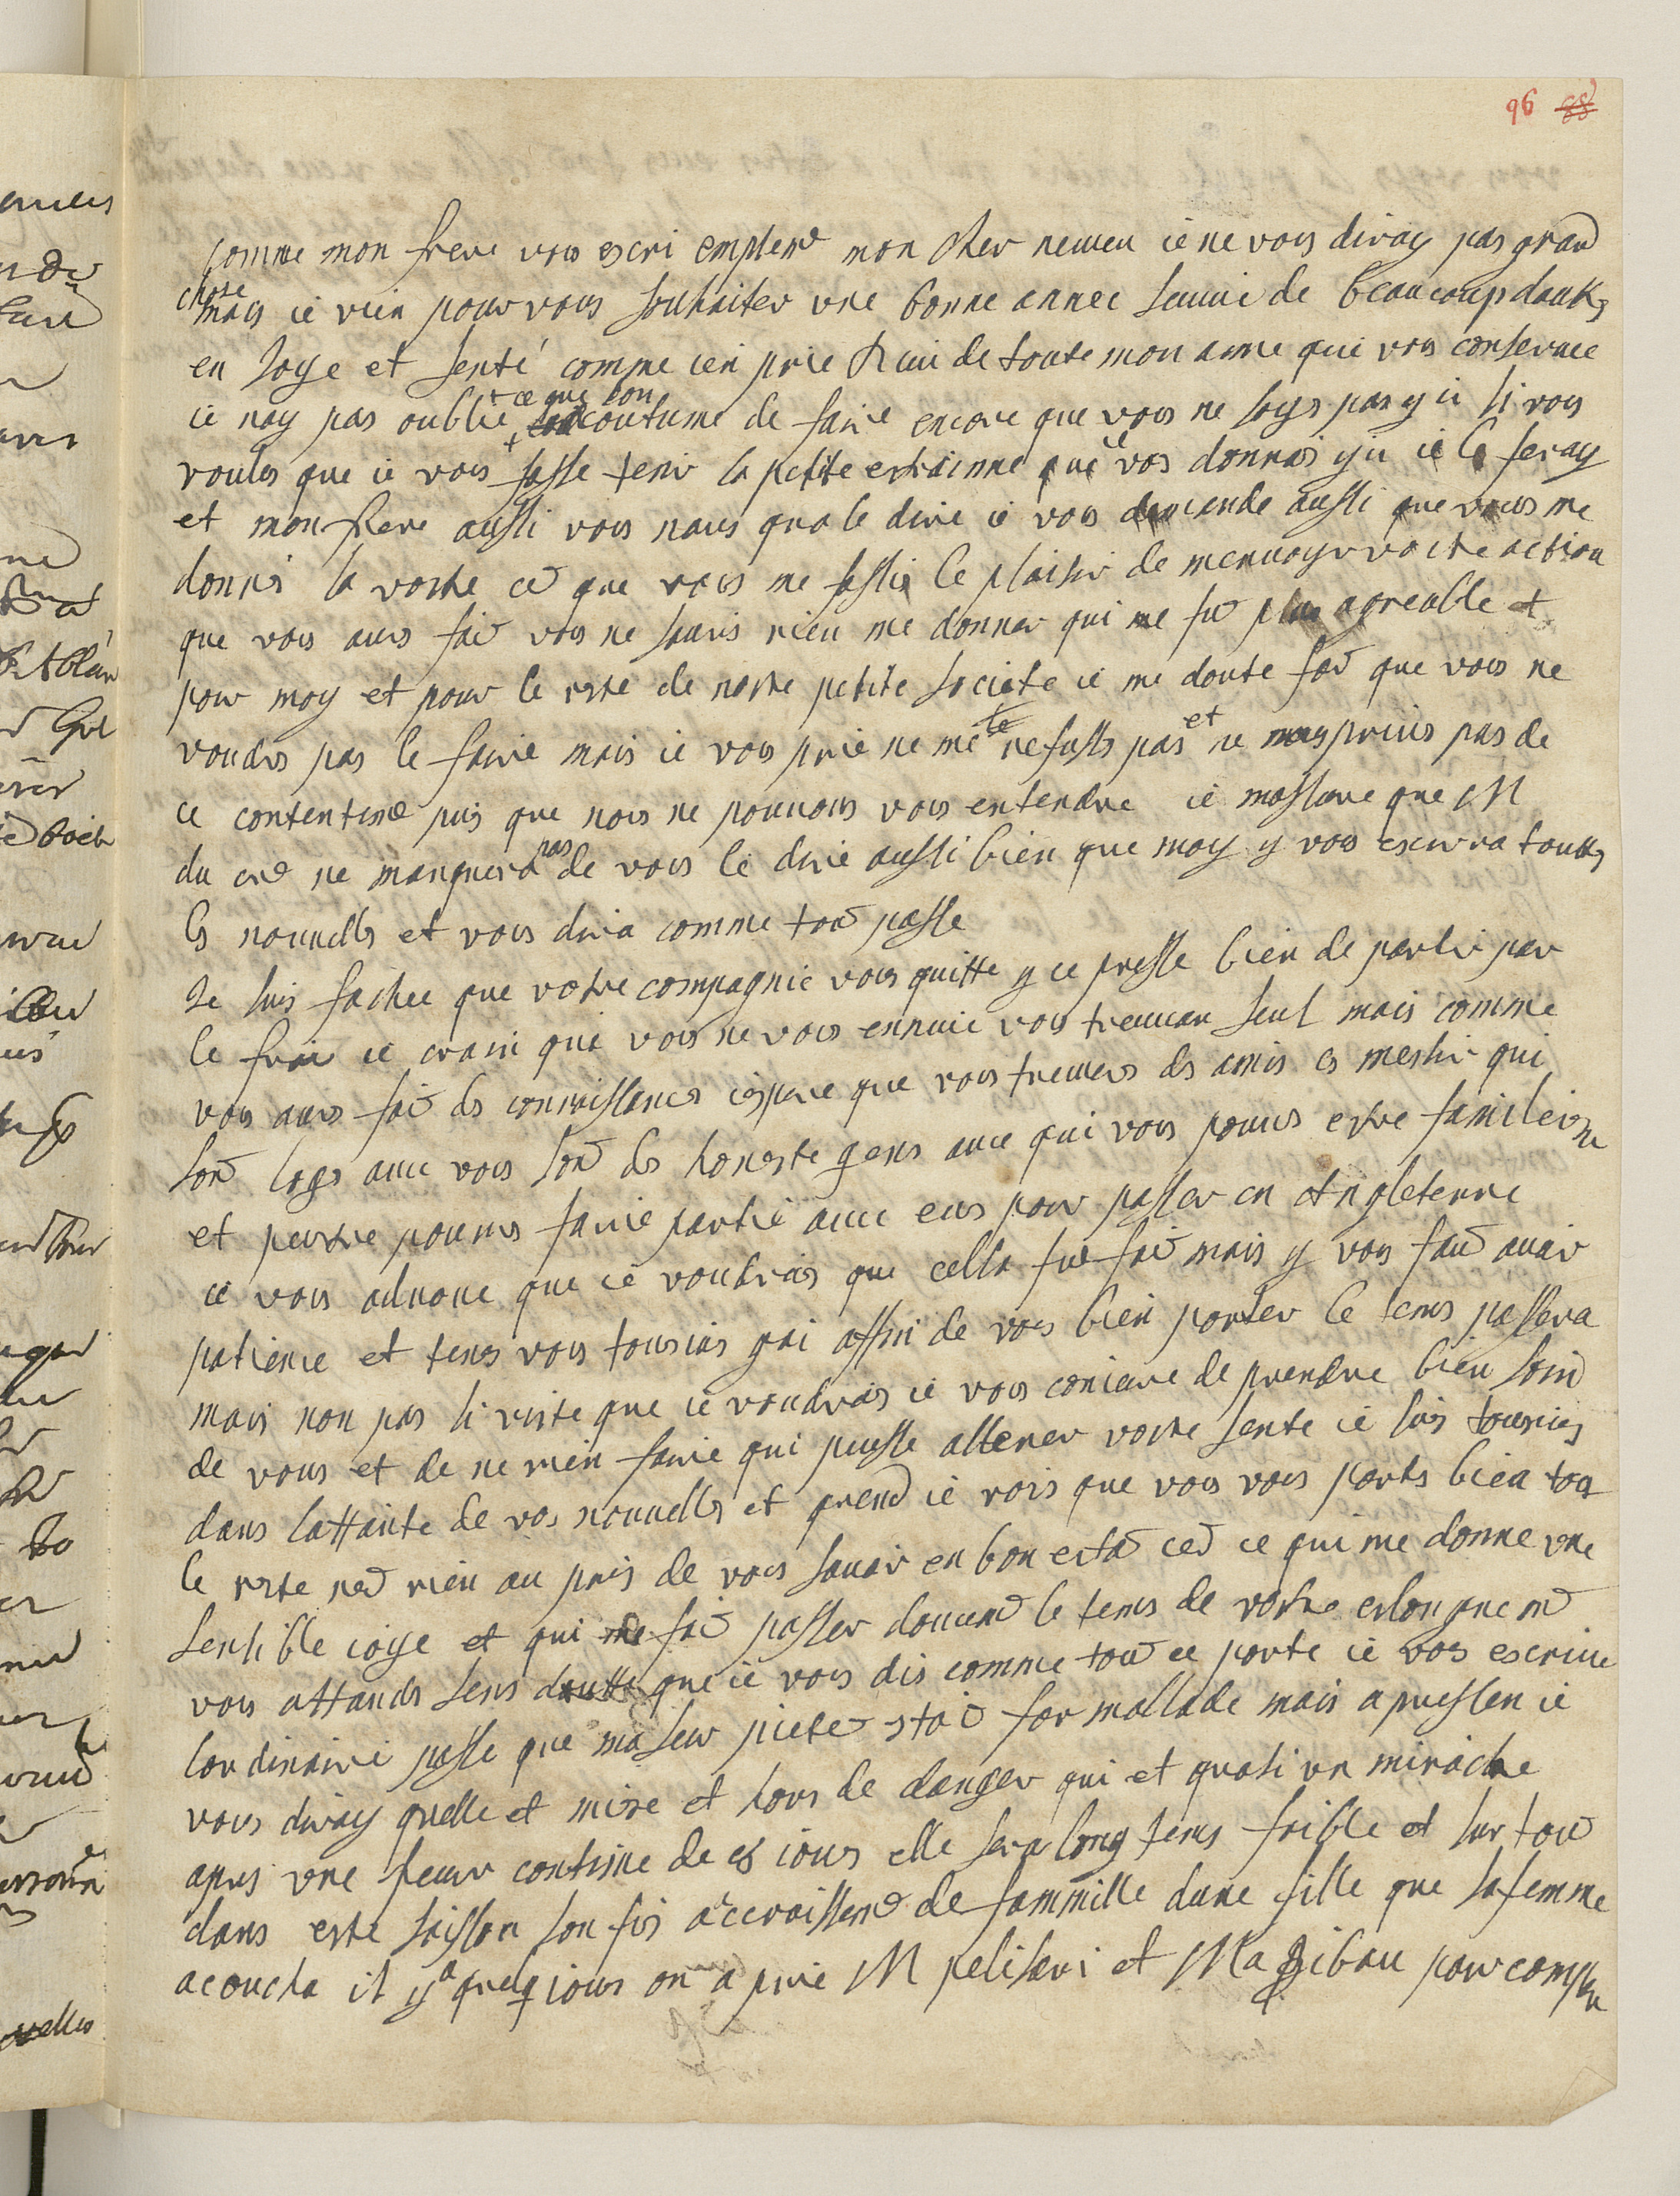 96 88
comme mon frere vous escri emplem̄ mon cher neueu ie ne vous diray pas grand
chose
mais ie vien pour vous souhaiter vne bonne annee seuuie de beaucoup dautres
en joye et senté comme ien prie Dieu de toute mon amme qui vous conserue
ie nay pas oublie + ce que lon acoutume de faire encore que vous ne soys pas y ci si vous
voules que ie vous fasse tenir la petite estrainne que ie vos donnois y ci ie le feray
et mon frere aussi vous naues qua le dire ie vous demende aussi que vous me
donnis la vostre cē que vous me fassis le plaisir de menuoyer vostre action
que vous aues fai vous ne sauris rien me donner qui me fu plus agreable et
pour moy et pour le reste de nostre petite societe ie me doute for que vous ne
voudres pas le faire mais ie vous prie ne me le refuses pas et ne nous priuis pas de
ce contentem̄ puis que nous ne pouuons vous entendre ie massure que M
du cre ne manquera pas de vous le dire aussi bien que moy y vous escrira toutes
les nouuelles et vous dira comme tou passe
Je suis fachee que votre compagnie vous quitte y ce presse bien de partir par
le froi ie crain que vous ne vous ennuie vous treuuan seul mais comme
vous aues fai des connoissances iespere que vous treuueres des amis ces messir qui
son loges auec vous son des honeste gens auec qui vous poues estre familierem
et peutre poures faire partie auec eus pour passer en Angleterre
ie vous aduoue que ie voudrois que cella fu fai mais y vous fau auoir
patience et tenes vous tousiours gai affin de vous bien porter le tems passera
mais non pas si viste que ie voudrois ie vous coniure de prendre bien soin
de vous et de ne rien faire qui puisse alterer vostre sente ie suis tousiours
dans lattainte de vos nouuelles et quend ie vois que vous vous portes bien tou
le reste ned rien au pris de vous sauoir en bon esta ced ce qui me donne vne
sensible ioye et qui me fai passer doucem̄ le tems de vostre eslongnem̄
vous attands sens doutte que ie vous dis comme tou ce porte ie vos escriui
lordinaire passe que ma seur pictet estoi for mallade mais a pressen ie
vous diray quelle et mise et hors de danger qui et quasi vn miracle
apres vne fieure continue de iours elle sera long tems foible et sur tou
dans este saison son fis a accroissem̄ de fammille dune fille que sa femme
acoucha il y a quelq iours on a prie M pelisari et Ma gibau pour comper